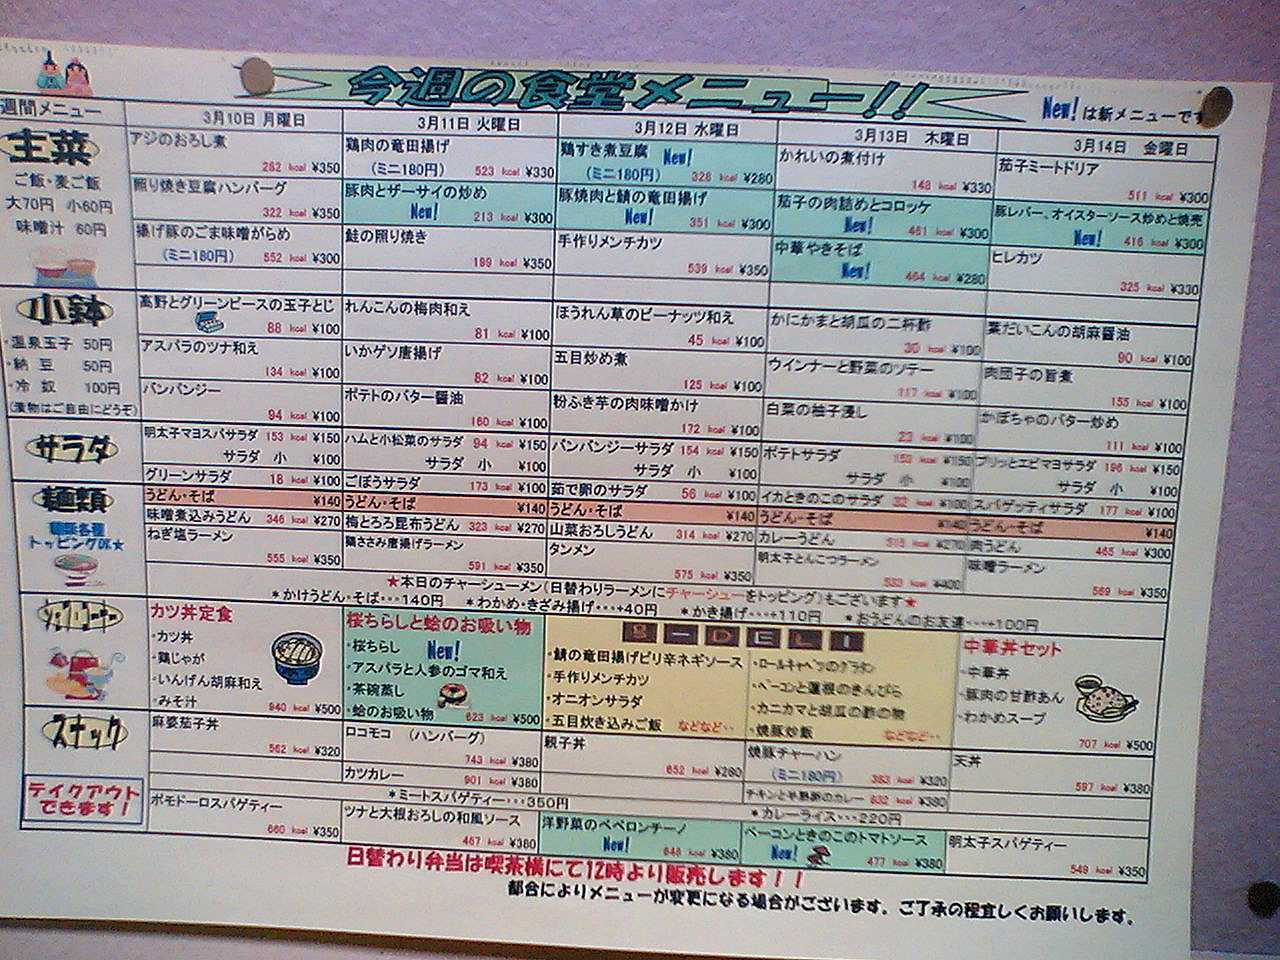 今週の食堂メニュー!!
New! は新メニューです
週間メニュー
3月10日 月曜日
3月11日 火曜日
3月12日 水曜日
3月13日 木曜日
3月14日 金曜日
主菜
ご飯・麦ご飯
大70円 小60円
味噌汁 60円
アジのおろし煮
262 kcal ¥350
鶏肉の竜田揚げ
(ミニ180円) 523 kcal ¥330
鶏すき煮豆腐 New!
(ミニ180円) 328 kcal ¥280
かれいの煮付け
148 kcal ¥330
茄子ミートドリア
511 kcal ¥300
照り焼き豆腐ハンバーグ
322 kcal ¥350
豚肉とザーサイの炒め
New! 213 kcal ¥300
豚焼肉と鯖の竜田揚げ
New! 351 kcal ¥300
茄子の肉詰めとコロッケ
New! 461 kcal ¥300
豚レバー、オイスターソース炒めと焼売
New! 416 kcal ¥300
揚げ豚のごま味噌がらめ
(ミニ180円) 552 kcal ¥300
鮭の照り焼き
189 kcal ¥350
手作りメンチカツ
539 kcal ¥350
中華やきそば
New! 464 kcal ¥280
ヒレカツ
325 kcal ¥330
小鉢
・温泉玉子 50円
・納 豆 50円
・冷 奴 100円
(漬物はご自由にどうぞ)
高野とグリーンピースの玉子とじ
88 kcal ¥100
れんこんの梅肉和え
81 kcal ¥100
ほうれん草のピーナッツ和え
45 kcal ¥100
かにかまと胡瓜の二杯酢
30 kcal ¥100
葉だいこんの胡麻醤油
90 kcal ¥100
アスパラのツナ和え
134 kcal ¥100
いかゲソ唐揚げ
82 kcal ¥100
五目炒め煮
125 kcal ¥100
ウインナーと野菜のソテー
117 kcal ¥100
肉団子の旨煮
155 kcal ¥100
バンバンジー
94 kcal ¥100
ポテトのバター醤油
160 kcal ¥100
粉ふき芋の肉味噌かけ
172 kcal ¥100
白菜の柚子浸し
23 kcal ¥100
かぼちゃのバター炒め
111 kcal ¥100
サラダ
明太子マヨスパサラダ 153 kcal ¥150
サラダ 小 ¥100
ハムと小松菜のサラダ 94 kcal ¥150
サラダ 小 ¥100
バンバンジーサラダ 154 kcal ¥150
サラダ 小 ¥100
ポテトサラダ 153 kcal ¥150
サラダ 小 ¥100
プリッとエビマヨサラダ 196 kcal ¥150
サラダ 小 ¥100
グリーンサラダ 18 kcal ¥100
ごぼうサラダ 173 kcal ¥100
茹で卵のサラダ 56 kcal ¥100
イカときのこのサラダ 32 kcal ¥100
スパゲッティサラダ 177 kcal ¥100
麺類
麺類各種
トッピングOK★
うどん・そば ¥140
うどん・そば ¥140
うどん・そば ¥140
うどん・そば ¥140
うどん・そば ¥140
味噌煮込みうどん 346 kcal ¥270
梅とろろ昆布うどん 323 kcal ¥270
山菜おろしうどん 314 kcal ¥270
カレーうどん kcal ¥270
肉うどん 465 kcal ¥300
ねぎ塩ラーメン
555 kcal ¥350
鶏ささみ唐揚げラーメン
591 kcal ¥350
タンメン
575 kcal ¥350
明太子とんこつラーメン
533 kcal ¥400
味噌ラーメン
569 kcal ¥350
★本日のチャーシューメン(日替わりラーメンにチャーシューをトッピング)もございます★
*かけうどん・そば・・・140円 *わかめ・きざみ揚げ・・・+40円 *かき揚げ・・・+110円 *おうどんのお友達・・・+100円
カツ丼定食
・カツ丼
・鶏じゃが
・いんげん胡麻和え
・みそ汁
940 kcal ¥500
桜ちらしと蛤のお吸い物
・桜ちらし New!
・アスパラと人参のゴマ和え
・茶碗蒸し
・蛤のお吸い物 623 kcal ¥500
g-DELI
・鯖の竜田揚げピリ辛ネギソース
・手作りメンチカツ
・オニオンサラダ
・五目炊き込みご飯 などなど・・
・ロールキャベツのグラタン
・ベーコンと蓮根のきんぴら
・カニカマと胡瓜の酢の物
・焼豚炒飯 などなど・・
中華丼セット
・中華丼
・豚肉の甘酢あん
・わかめスープ
707 kcal ¥500
スナック
麻婆茄子丼
562 kcal ¥320
ロコモコ (ハンバーグ)
743 kcal ¥380
カツカレー
901 kcal ¥380
親子丼
652 kcal ¥280
焼豚チャーハン
(ミニ180円) 383 kcal ¥320
チキンと半熟卵のカレー 632 kcal ¥380
天丼
597 kcal ¥380
*ミートスパゲティー・・・350円
*カレーライス・・・220円
テイクアウト
できます!
ポモドーロスパゲティー
660 kcal ¥350
ツナと大根おろしの和風ソース
467 kcal ¥380
洋野菜のペペロンチーノ
New! 648 kcal ¥380
ベーコンときのこのトマトソース
New! 477 kcal ¥380
明太子スパゲティー
549 kcal ¥350
日替わり弁当は喫茶横にて12時より販売します!!
都合によりメニューが変更になる場合がございます。ご了承の程宜しくお願いします。